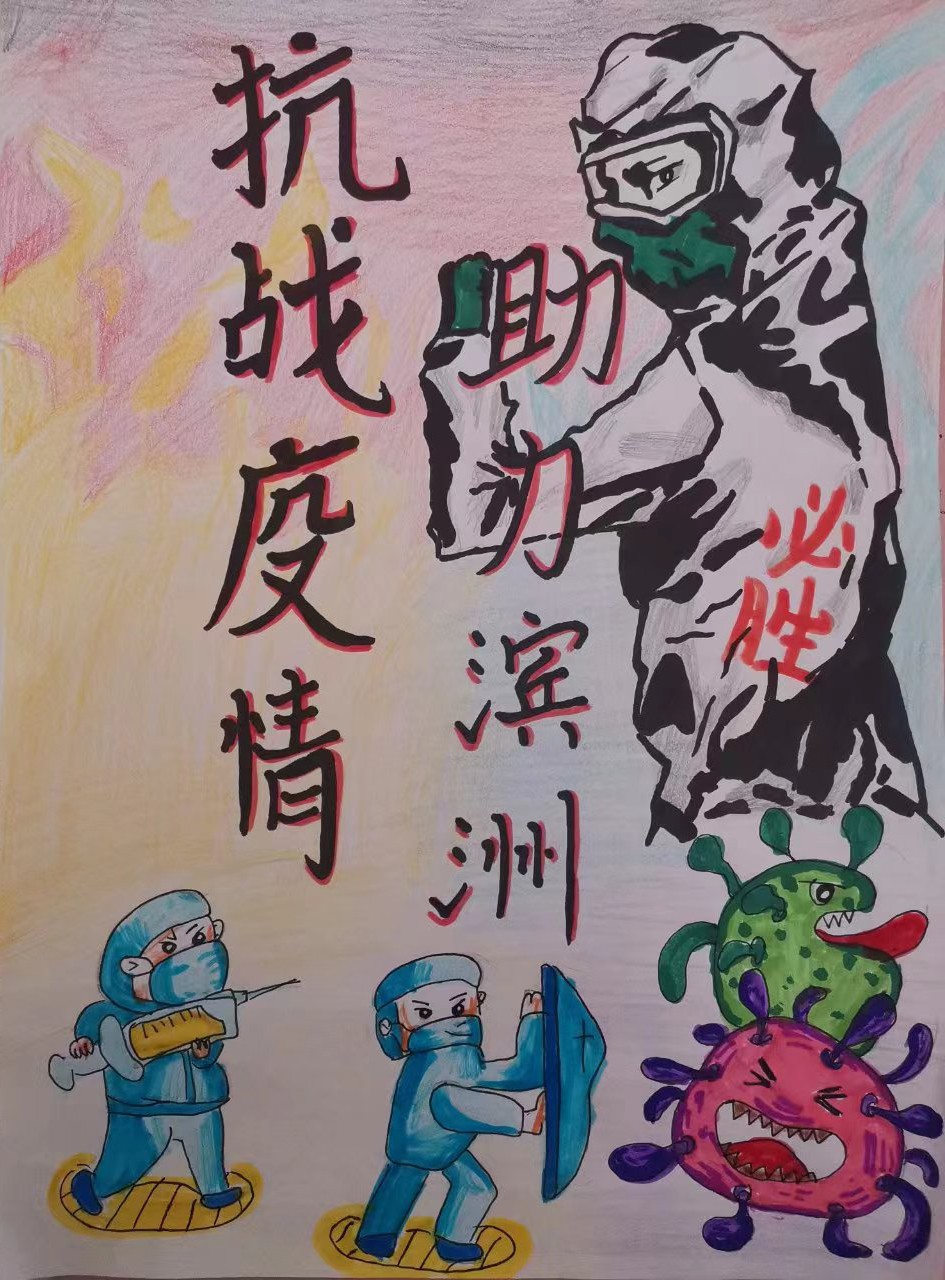 抗战疫情
助力滨洲
必胜